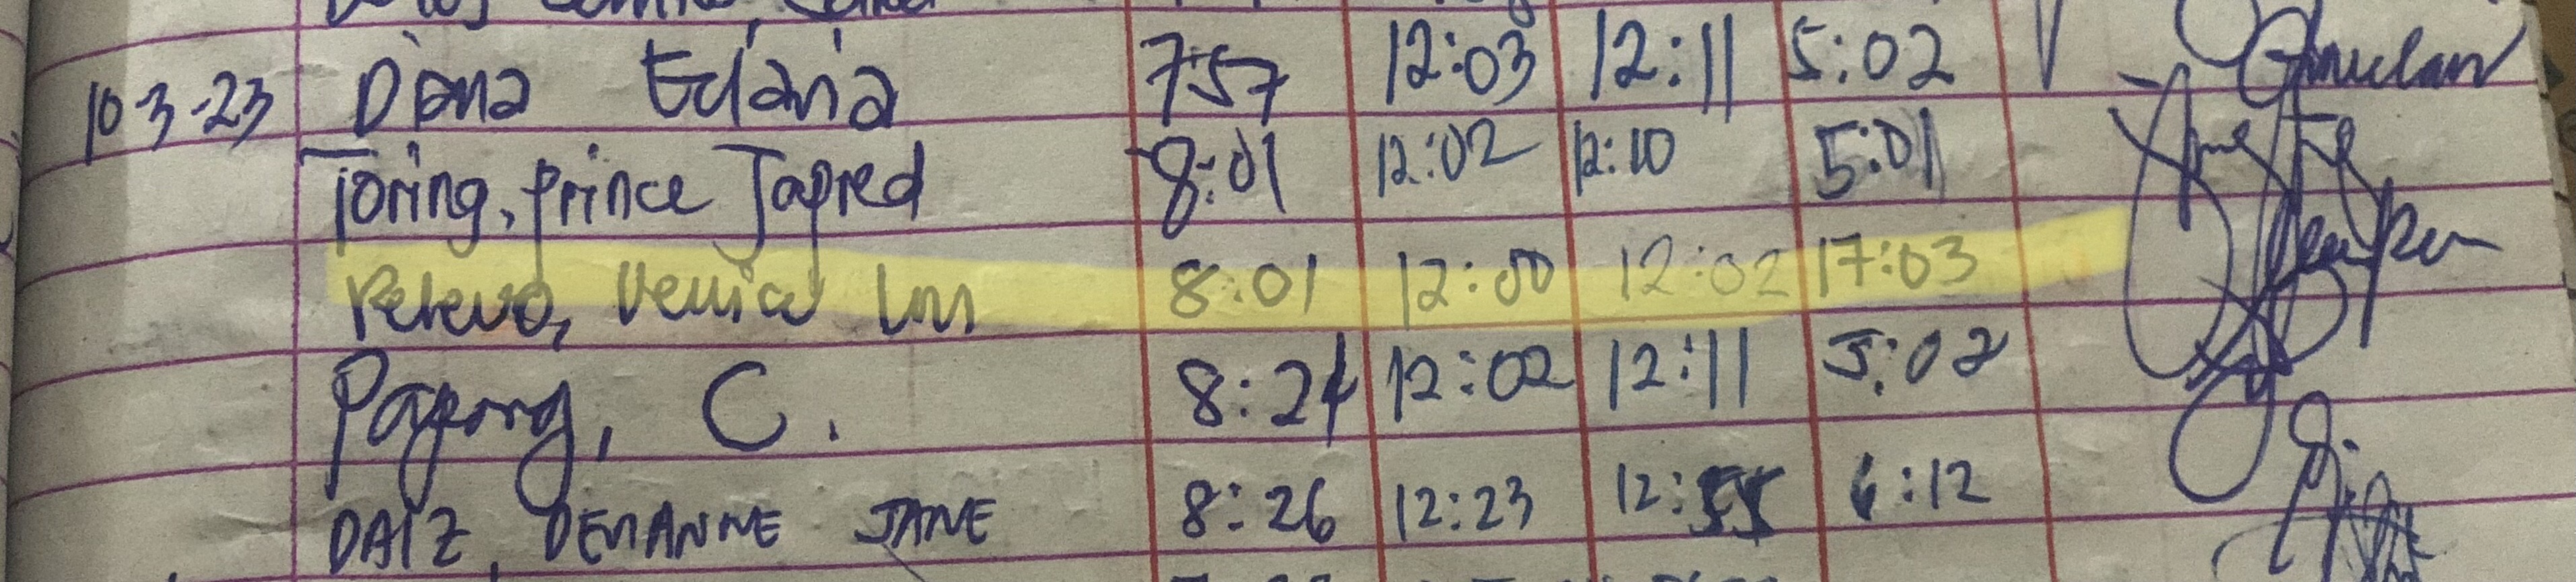 10-3-23 Diana Edania 7:57 12:03 12:11 5:02
Toring, Prince Japred 8:01 12:02 12:10 5:01
Pelevo, Venice Lm 8:01 12:00 12:02 17:03
C. 8:24 12:02 12:11 5:02
DAIZ, DENANNE JANE 8:26 12:23 12:55 6:12